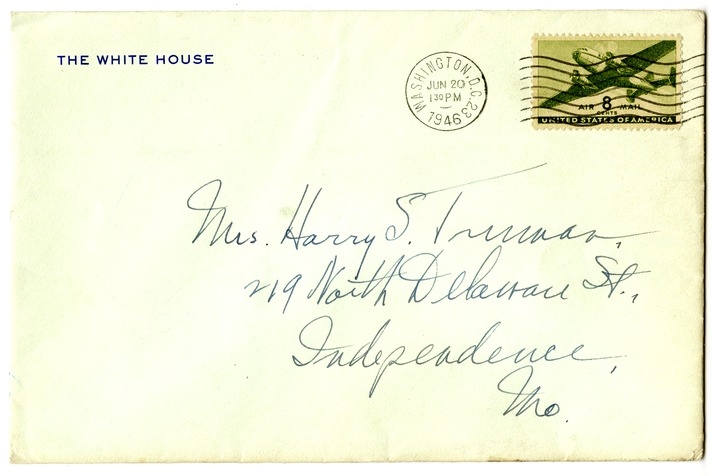 THE WHITE HOUSE
WASHINGTON, D.C. 23
JUN 20
1 30 PM
1946
AIR 8 MAIL
CENTS
UNITED STATES OF AMERICA
Mrs. Harry S. Truman,
219 North Delaware St.,
Independence,
Mo.